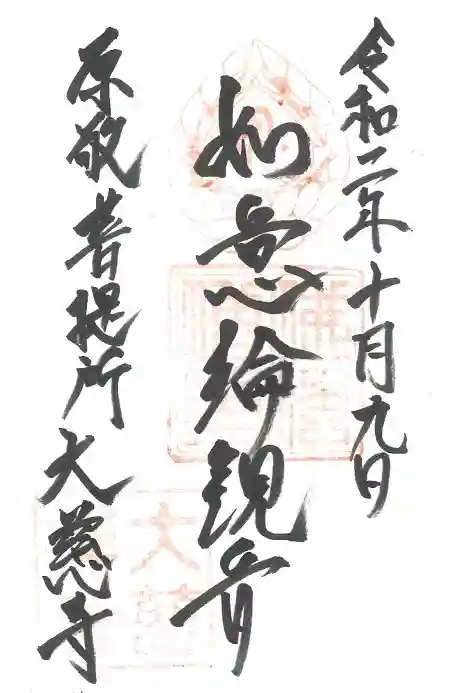 令和二年十月九日
如意輪観音
原敬菩提所 大慈寺